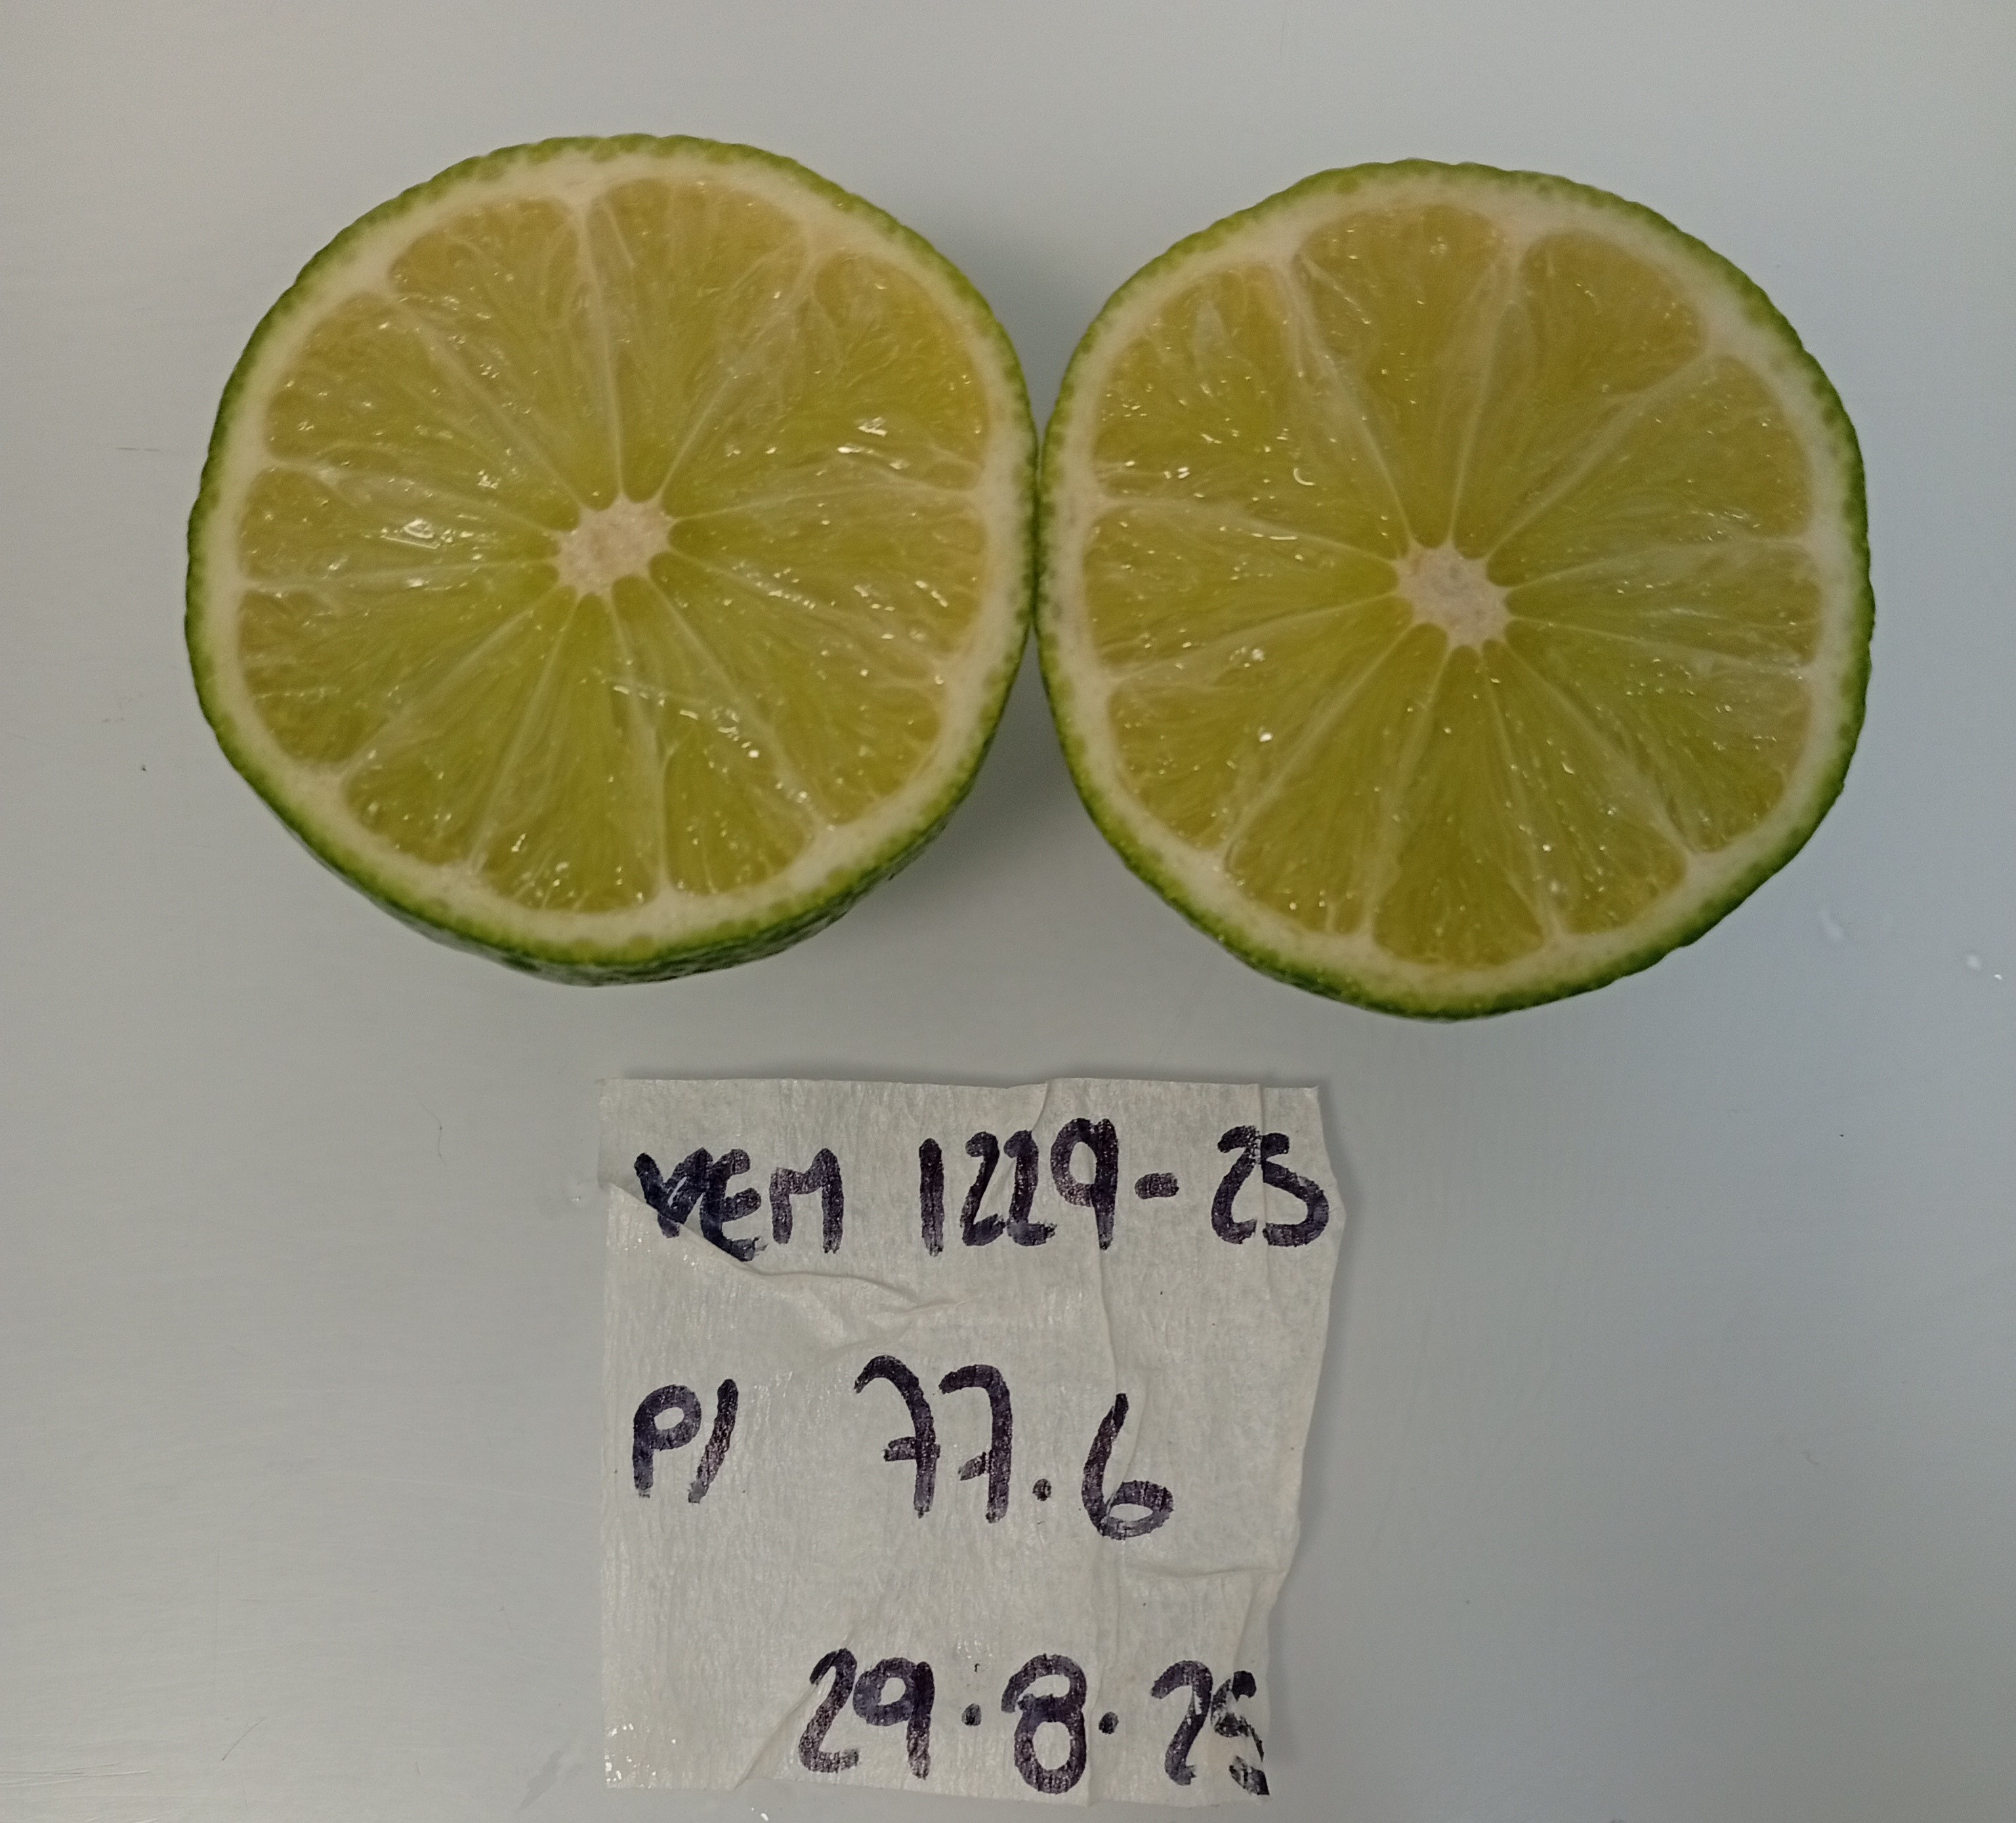 VEM 1229-25
P/ 77.6
29.8.25